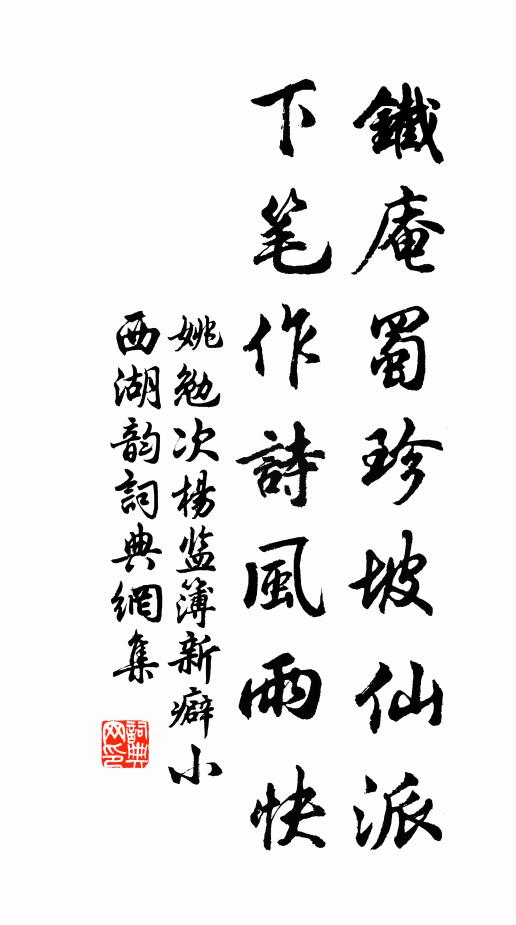 鐵庵蜀珍坡仙派
下笔作詩風雨快
姚勉次楊监簿新癖小
西湖韵詞典網集
詞典网印